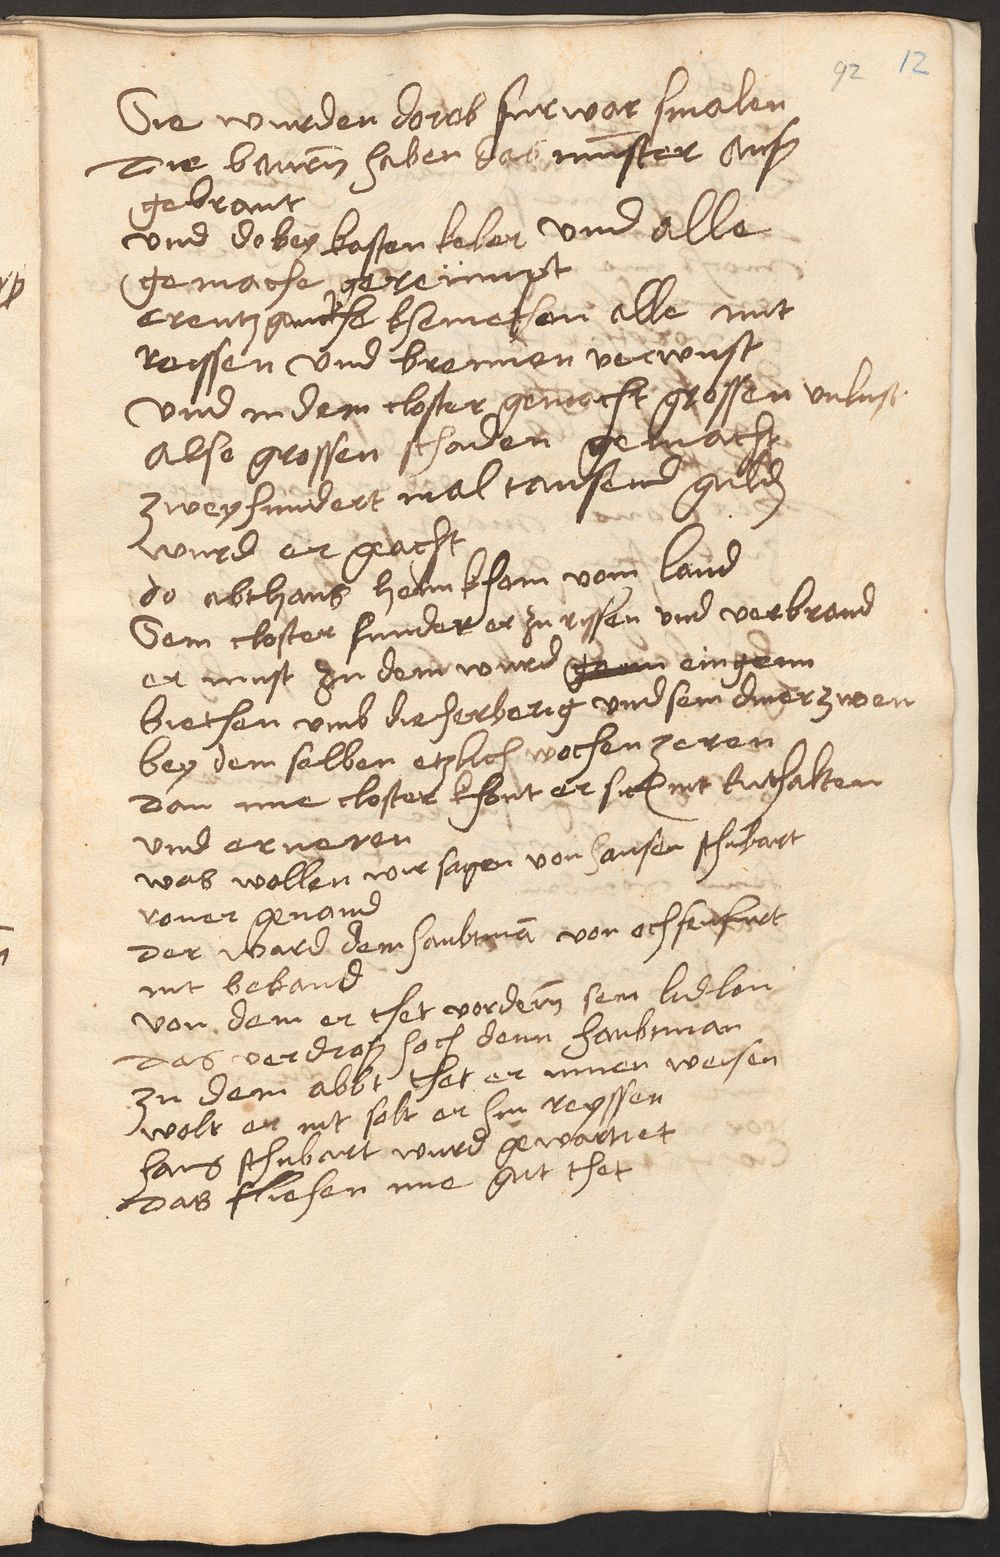 92 12
Sie wurden dorob furwar smalen
Die bauern̄ haben das mūnster auß
gebrant
und dobey kosten keler und alle
gemache gereümpt
creutzgencke khemethen alle mit
reyssen und brennen verwust
und in dem closter gemacht grossen unlust
Also grossen schaden gemacht
zweyhundert mal tausend guld
wurd er geacht
do abt hans heim kham vom land
Sein closter funder er zu ryssen und verbrand
er must zu dem wurd ein
biethen umb die herberig und sein diner zwen
bey dem selben etzlich wochen zeren
Dan ime closter khont er sich nit enthalten
und erneren
was wollen wir sagen von hansen schubart
roner genand
Der ward dem haubtmā von ochsenfurt
nit bekand
von dem er thet vordern̄ sein lidlon
Das verdroß hoch denn haubtman
zu dem abbt thet er innen weisen
wolt er nit solt er hin reyssen
hans schubart wurd gewarnet
Das fliehen ime gut thet